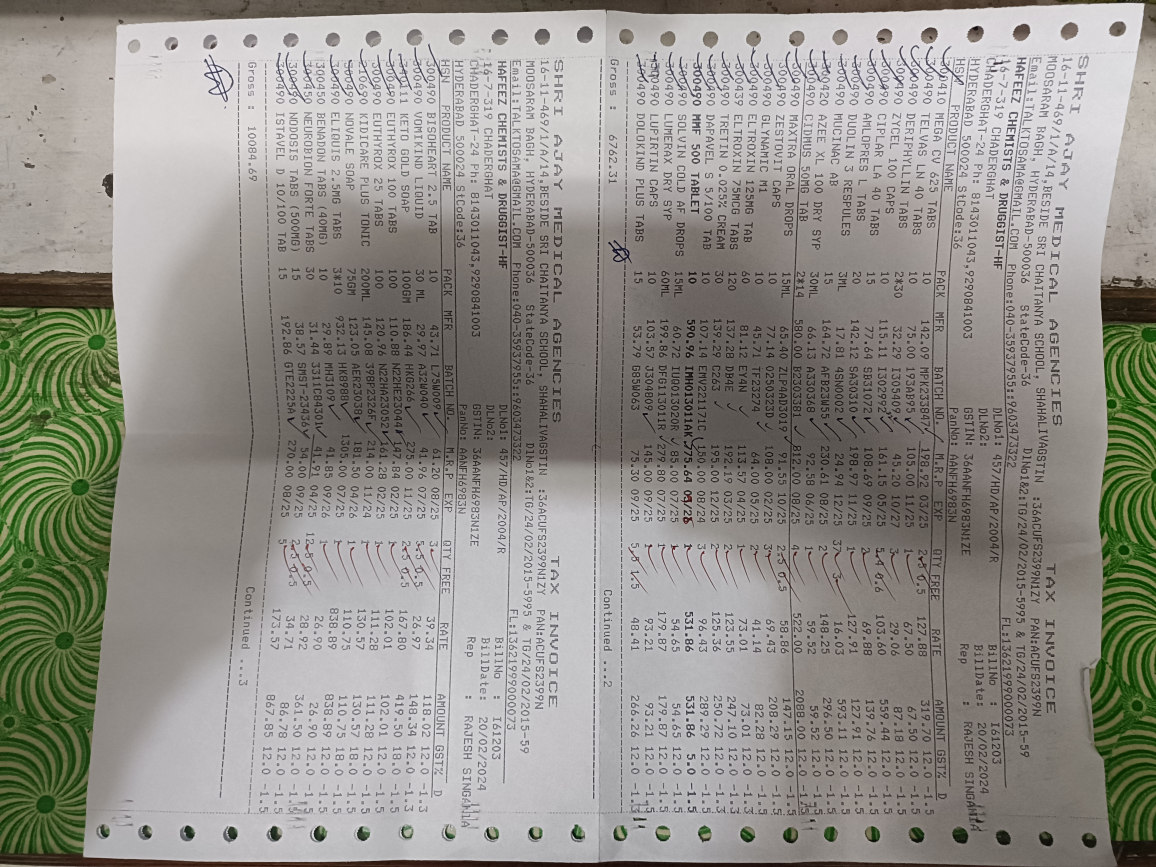 SHRI AJAY MEDICAL AGENCIES TAX INVOICE
16-11-469/1/A/14,BESIDE SRI CHAITANYA SCHOOL, SHAHALIVAGSTIN :36ACUFS2399N1ZY PAN:ACUFS2399N
MOOSARAM BAGH, HYDERABAD-500036 StateCode-36 DlNo1&2:TG/24/02/2015-5995 & TG/24/02/2015-59
Email:TALKTOSAMA@GMAIL.COM Phone:040-35937955::9603473322 FL:13621999000073
HAFEEZ CHEMISTS & DRUGGIST-HF DLNo1: 457/HD/AP/2004/R BillNo : I61203
16-7-319 CHADERGHAT DLNo2: BillDate: 20/02/2024
CHADERGHAT-24 Ph: 8143011043,9290841003 GSTIN: 36AANFH6983N1ZE Rep : RAJESH SINGANIA
HYDERABAD 500024 StCode:36 PanNo: AANFH6983N
HSN PRODUCT NAME PACK MFR BATCH NO. M.R.P EXP QTY FREE RATE AMOUNT GST% D
300410 MEGA CV 625 TABS 10 142.09 MPK233847 198.92 03/25 2.5 0.5 127.88 319.70 12.0 -1.5
300490 TELVAS LN 40 TABS 10 75.00 193AB95 105.00 11/25 1 67.50 67.50 12.0 -1.5
300490 DERIPHYLLIN TABS 2*30 32.29 45.20 10/27 3 29.06 87.18 12.0 -1.5
300490 ZYCEL 100 CAPS 10 115.11 I302992 161.15 05/25 5.4 0.6 103.60 559.44 12.0 -1.5
300490 CIPLAR LA 40 TABS 15 77.64 SB31072 108.69 09/25 2 69.88 139.76 12.0 -1.5
300490 AMLOPRES L TABS 15 142.12 SA30310 198.97 11/25 1 127.91 127.91 12.0 -1.5
300490 DUOLIN 3 RESPULES 3ML 17.81 4SN0002 24.94 12/25 37 3 16.03 593.11 12.0 -1.5
300490 MUCINAC AB 15 164.72 AFB23W55 230.61 08/25 2 148.25 296.50 12.0 -1.5
300420 AZEE XL 100 DRY SYP 30ML 66.13 A330368 92.58 06/25 1 59.52 59.52 12.0 -1.5
300490 CIDMUS 50MG TAB 2*14 580.00 B2303381 812.00 08/25 4 522.00 2088.00 12.0 -1.5
300490 MAXTRA ORAL DROPS 15ML 65.40 ZLPHAD3019 91.55 10/25 2.5 0.5 58.86 147.15 12.0 -1.5
300490 ZESTOVIT CAPS 10 77.14 0Z50323D 108.00 02/25 3 69.43 208.29 12.0 -1.5
300490 GLYNAMIC M1 10 45.71 TF23J274 64.00 05/25 2 41.14 82.28 12.0 -1.5
300439 ELTROXIN 125MG TAB 60 81.12 EY4N 113.57 04/25 1 73.01 73.01 12.0 -1.3
300439 ELTROXIN 75MCG TABS 120 137.28 DB4E 192.19 12/25 2 123.55 247.10 12.0 -1.3
300490 TRETIN 0.025% CREAM 30 139.29 C263 195.00 12/25 2 125.36 250.72 12.0 -1.5
300490 DAPAVEL S 5/100 TAB 10 107.14 EMV221171C 150.00 08/24 3 96.43 289.29 12.0 -1.5
300490 MMF 500 TABLET 10 590.96 IMH013011AK 775.64 05/26 1 531.86 531.86 5.0 -1.5
300490 SOLVIN COLD AF DROPS 15ML 60.72 IUG013020R 85.00 02/25 1 54.65 54.65 12.0 -1.5
300490 LUMERAX DRY SYP 60ML 199.86 DFG113011R 279.80 07/25 1 179.87 179.87 12.0 -1.5
LUPIRTIN CAPS 10 103.57 J304809 145.00 09/25 1 93.21 93.21 12.0 -1.5
300490 DOLOKIND PLUS TABS 15 53.79 G85W063 75.30 09/25 5.5 1.5 48.41 266.26 12.0 -1.3
Gross : 6762.31 Continued ...2
SHRI AJAY MEDICAL AGENCIES TAX INVOICE
16-11-469/1/A/14,BESIDE SRI CHAITANYA SCHOOL, SHAHALIVAGSTIN :36ACUFS2399N1ZY PAN:ACUFS2399N
MOOSARAM BAGH, HYDERABAD-500036 StateCode-36 DlNo1&2:TG/24/02/2015-5995 & TG/24/02/2015-59
Email:TALKTOSAMA@GMAIL.COM Phone:040-35937955::9603473322 FL:13621999000073
HAFEEZ CHEMISTS & DRUGGIST-HF DLNo1: 457/HD/AP/2004/R BillNo : I61203
16-7-319 CHADERGHAT DLNo2: BillDate: 20/02/2024
CHADERGHAT-24 Ph: 8143011043,9290841003 GSTIN: 36AANFH6983N1ZE Rep : RAJESH SINGANIA
HYDERABAD 500024 StCode:36 PanNo: AANFH6983N
HSN PRODUCT NAME PACK MFR BATCH NO. M.R.P EXP QTY FREE RATE AMOUNT GST% D
300490 BISOHEART 2.5 TAB 10 43.71 L75W009 61.20 08/25 3 39.34 118.02 12.0 -1.3
300490 VOMIKIND LIQUID 30 ML 29.97 A32W040 41.96 07/25 5.5 0.5 26.97 148.34 12.0 -1.3
KETO GOLD SOAP 100GM 186.44 HKG266 275.00 11/25 2.5 0.5 167.80 419.50 18.0 -1.5
300490 EUTHYROX 50 TABS 100 110.88 N22HE23044 147.84 02/25 1 102.01 102.01 12.0 -1.5
300490 EUTHYROX 100 TABS 100 120.96 N22HA23052 161.28 02/25 1 111.28 111.28 12.0 -1.5
210690 KIDICARE PLUS TONIC 200ML 145.08 398P2326F 214.00 11/24 1 130.57 130.57 18.0 -1.5
NOVALE SOAP 75GM 123.05 AER23038 181.50 04/26 1 110.75 110.75 18.0 -1.5
300490 ELIQUIS 2.5MG TABS 3*10 932.13 HK8988 1305.00 07/25 1 838.89 838.89 12.0 -1.5
300450 BENADON TABS (40MG) 10 29.89 MH3109 41.85 09/26 1 26.90 26.90 12.0 -1.5
300450 NEUROBION FORTE TABS 30 31.44 3311C8430 41.91 04/25 12.5 0.5 28.92 361.50 12.0 -1.5
300490 NODOSIS TABS (500MG) 15 38.57 SMST-23426 54.00 09/25 2.5 0.5 34.71 86.78 12.0 -1.5
300490 ISTAVEL D 10/100 TAB 15 192.86 GTE2225A 270.00 08/25 5 173.57 867.85 12.0 -1.5
Gross : 10084.69 Continued ...3